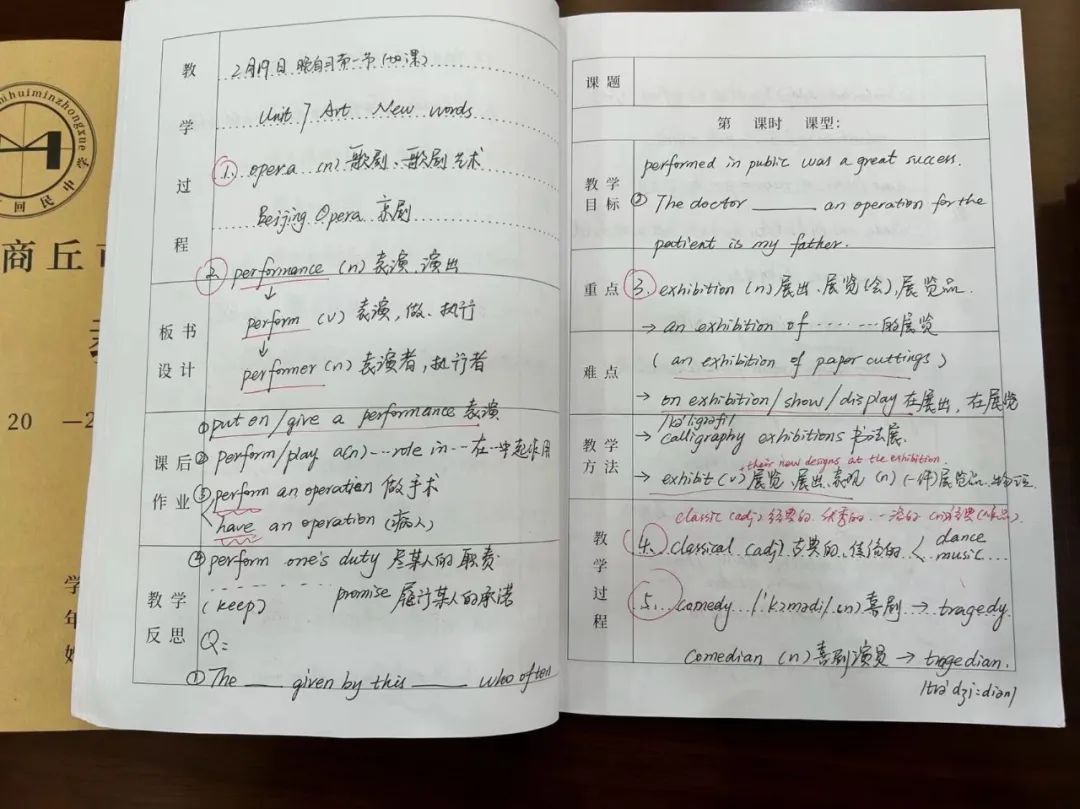 mhuiminzhongxue
回民中学
商丘市
20 —2
学
年
教
学
过
程
2月19日 晚自习第一节(40课)
Unit 7 Art New words
1. opera (n) 歌剧、歌剧艺术
Beijing Opera 京剧
2. performance (n) 表演, 演出
板书
设计
↓
perform (v) 表演, 做、执行
↓
performer (n) 表演者, 执行者
① put on/give a performance 表演
课后
作业
② perform/play a(n)…role in…在…中起作用
③ perform an operation 做手术
have an operation (病人)
④ perform one's duty 尽某人的职责
教学
反思
(keep) promise 履行某人的承诺
Q:
① The ___ given by this ___ who often
课题
第 课时 课型:
教学
目标
performed in public was a great success.
② The doctor ___ an operation for the
patient is my father.
重点
3. exhibition (n) 展出、展览(会), 展览品.
→ an exhibition of …… …的展览
难点
(an exhibition of paper cuttings)
→ on exhibition/show/display 在展出, 在展览
/kə'ligrəfi/
教学
方法
→ calligraphy exhibitions 书法展.
their new designs at the exhibition
→ exhibit (v) 展览、展出、表现 (n) (一件)展览品.
classic (adj) 经典的. 优秀的. 一流的 (n)经典(作品).
教
学
过
程
4. classical (adj) 古典的. 传统的 < dance
music
5. comedy /'kɔmədi/ (n) 喜剧 → tragedy.
Comedian (n) 喜剧演员 → tragedian.
/trə'dʒi:diən/